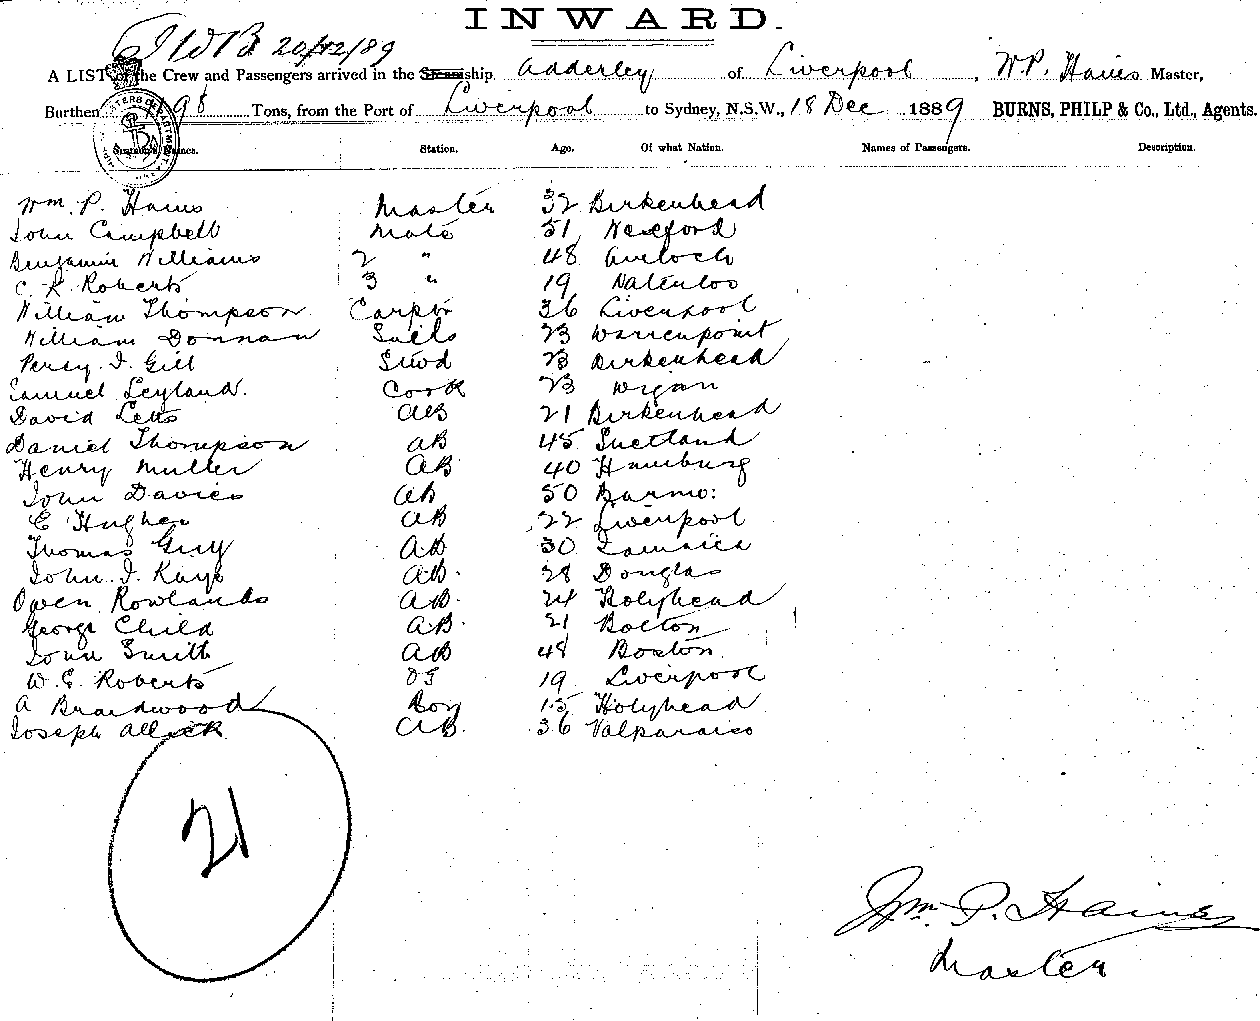 INWARD.
20/12/89
A LIST of the Crew and Passengers arrived in the Steamship Adderley of Liverpool, W.P. Haines Master,
Burthen 98 Tons, from the Port of Liverpool to Sydney, N.S.W., 18 Dec 1889 BURNS, PHILP & Co., Ltd., Agents.
Names. Station. Age. Of what Nation. Names of Passengers. Description.
Wm. P. Haines Master 32 Birkenhead
John Campbell Mate 51 Wexford
Benjamin Williams 2 " 48 Amloch
C. R. Roberts 3 " 19 Waterloo
William Thompson Carptr 36 Liverpool
William Donnan Sails 23 Warrenpoint
Percy. I. Gill Stwd 23 Birkenhead
Samuel Leyland. Cook 23 Wigan
David Letts AB 21 Birkenhead
Daniel Thompson AB 45 Shetland
Henry Muller AB 40 Hamburg
John Davies AB 50 Barmo:
E Hughes AB 22 Liverpool
Thomas Guy AB 30 Jamaica
John. I. Kaye AB. 28 Douglas
Owen Rowlands AB. 24 Holyhead
George Child AB. 21 Bolton
John Smith AB 48 Boston.
W. E. Roberts OS 19 Liverpool
A Braidwood Boy 15 Holyhead
Joseph Allick AB. 36 Valparaiso
21
Wm. P. Haines
Master